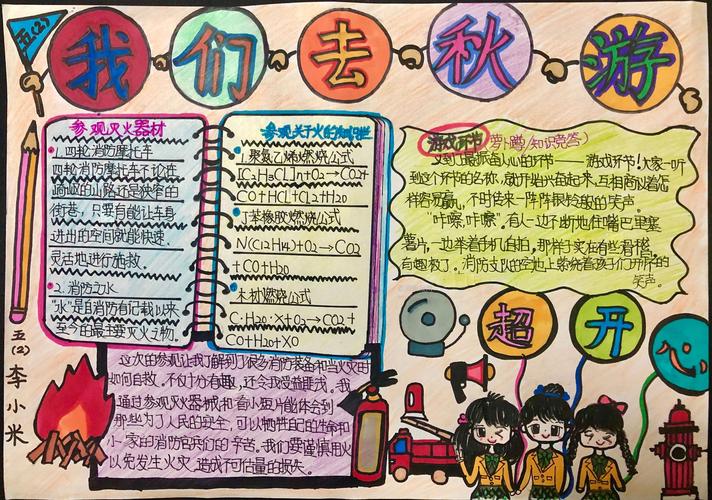 五(2)
我们去秋游
参观灭火器材
1.四轮消防摩托车
四轮消防摩托车不论在
崎岖的山路还是狭窄的
街巷,只要有能让车身
进出的空间就能快速、
灵活地进行施救。
2.消防之水
"水"是自消防有记载以来
至今的最主要灭火之物。
参观关于火的知识栏
1.聚氯乙烯燃烧公式
[C2H3Cl]n+O2→CO2+
CO+HCl+Cl2+H2O
丁苯橡胶燃烧公式
N(C12H14)+O2→CO2
+CO+H2O
木材燃烧公式
C·H2O·X+O2→CO2+
CO+H2O+XO
游戏环节(萝卜蹲/知识竞答)
又到了最振奋人心的环节——游戏环节!大家一听
到这个环节的名称,就开始兴奋起来,互相商议着怎
样容易赢,不时传来一阵阵银铃般的笑声。
"咔嚓,咔嚓"。有人一边不断地往嘴巴里塞
薯片,一边举着手机自拍,那样子实在有些滑稽。
有趣极了。消防支队的空地上萦绕着孩子们开怀的
笑声。
超开心
五(2)李小米
这次的参观让我了解到了很多消防装备和当火灾时
如何自救。不仅十分有趣,还令我受益匪浅。我
通过参观灭火器械和看小短片能体会到
那些为了人民的安全,可以牺牲自己的生命和
小家的消防官兵们的辛苦。我们要谨慎用火
以免发生火灾,造成不可估量的损失。